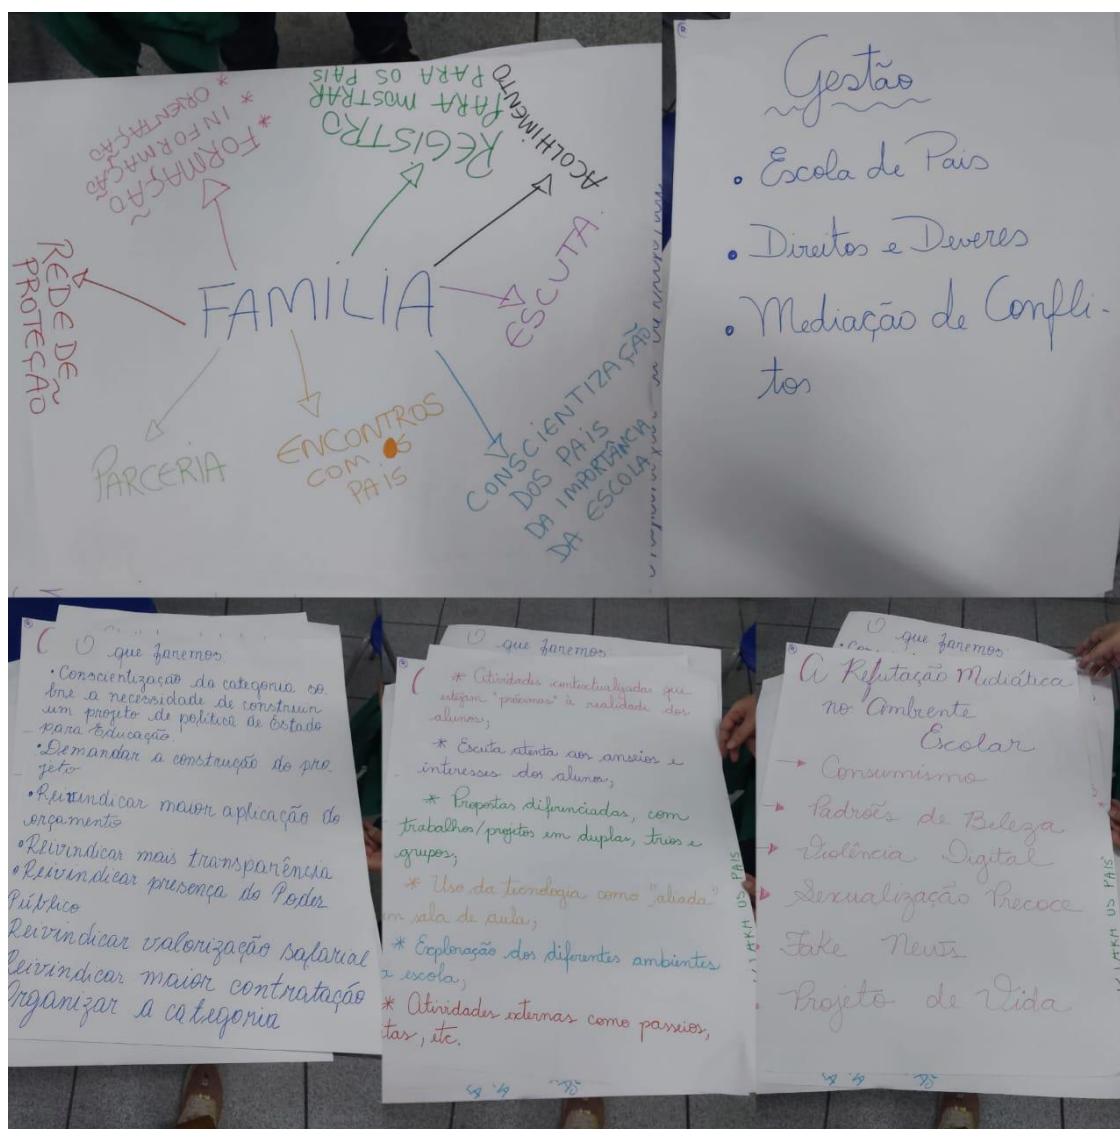 FORMAÇÃO
* INFORMAÇÃO
* ORIENTAÇÃO
REGISTRO
PARA MOSTRAR
PARA OS PAIS
ACOLHIMENTO
ESCUTA.
REDE DE
PROTEÇÃO
FAMÍLIA
PARCERIA
ENCONTROS
COM OS
PAIS
CONSCIENTIZAÇÃO
DOS PAIS
DA IMPORTÂNCIA
DA ESCOLA
Gestão
• Escola de Pais
• Direitos e Deveres
• Mediação de Confli-
tos
O que faremos:
• Conscientização da categoria so-
bre a necessidade de construir
um projeto de política de Estado
para Educação
• Demandar a construção do pro-
jeto
• Reivindicar maior aplicação do
orçamento
• Reivindicar mais transparência
• Reivindicar presença do Poder
Público
Reivindicar valorização salarial
Reivindicar maior contratação
Organizar a categoria
O que faremos
* Atividades contextualizadas que
estejam "próximas" à realidade dos
alunos;
* Escuta atenta aos anseios e
interesses dos alunos;
* Propostas diferenciadas, com
trabalhos/projetos em duplas, trios e
grupos;
* Uso da tecnologia como "aliada"
em sala de aula;
* Exploração dos diferentes ambientes
a escola;
* Atividades externas como passeios,
tas, etc.
O que faremos
A Refutação Midiática
no Ambiente
Escolar
→ Consumismo
→ Padrões de Beleza
→ Violência Digital
→ Sexualização Precoce
Fake News
Projeto de Vida